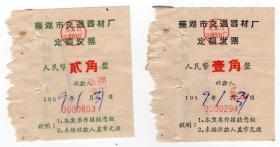 芜湖市交通器材厂
定额发票
人民币贰角整
收款人
1959年1月31日
0000603
说明：1.本发票作报销凭证
2.未经收款人盖章无效
芜湖市交通器材厂
定额发票
人民币壹角整
收款人
1959年1月31日
0000294
说明：1.本发票作报销凭证
2.未经收款人盖章无效